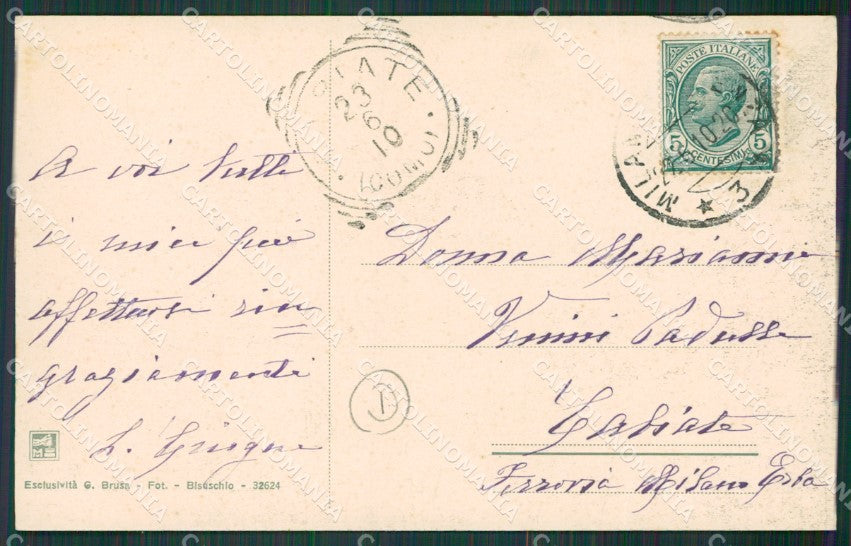 A voi tutti
i miei più
affettuosi rin
graziamenti
L.
Esclusività G. Brusa - Fot. - Bisuschio - 32624
23
6
10
(COMO)
POSTE ITALIANE
5 CENTESIMI 5
MILANO
3
Donna Marianni
Vimini Padulli
Cabiate
Ferrovia Milano Erba
1
CARTOLINOMANIA